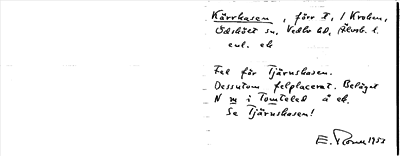 Kärrhasen, förr t, / Kroken,
Ödskölt sn, Vedbo hd, Älvsb. l.
enl. ek
Fel för Tjärnshasen.
Dessutom felplacerat. Beläget
N m i Tomteled å ek.
Se Tjärnshasen!
E. 1953